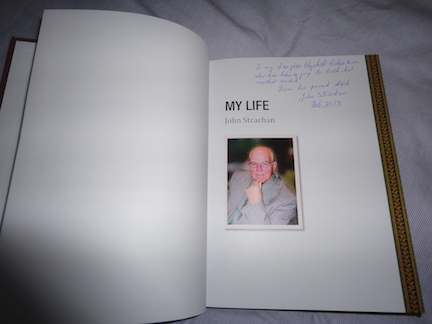 To my daughter Elizabeth
who has been a joy to
From her proud dad
John Strachan
Feb 2013
MY LIFE
John Strachan